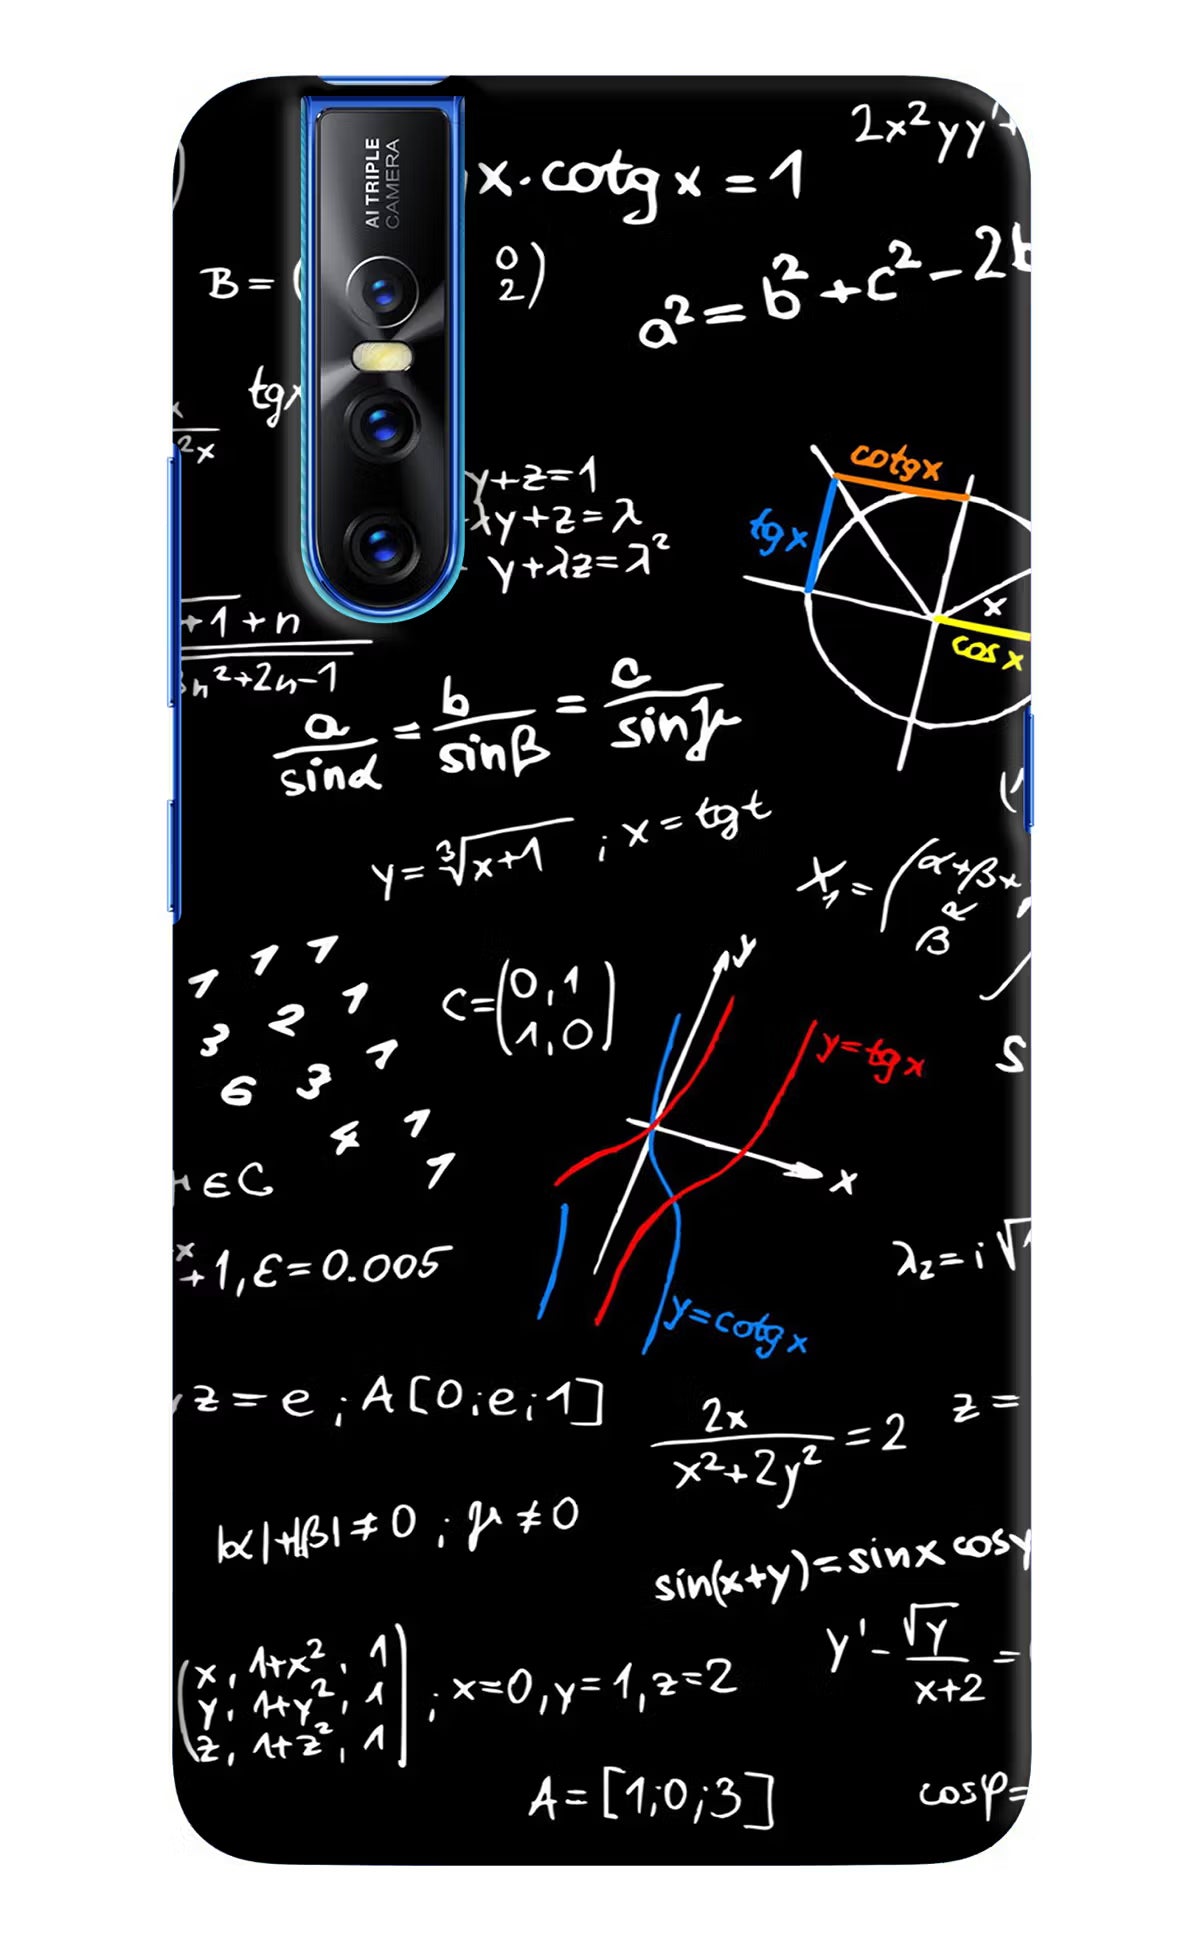 AI TRIPLE
CAMERA
2x²yy'+
x·cotg x = 1
B = (
0
2)
a² = b² + c² - 2b
tgx
x
2x
y+z=1
λy+z=λ
y+λz=λ²
cotgx
tgx
x
cos x
+1 + n
3n²+2n-1
a/sinα = b/sinβ = c/sinγ
y = ∛x+1 ; x = tg t
X₁ = (α+β+
β
1 1 1
3 2 1
6 3 1
4 1
1
C = (0,1
1,0)
y
y=tgx
x
y=cotgx
S
μ∈C
x
+1, ε = 0.005
λ₂ = i√
z = e ; A[0;e;1]
2x/x²+2y² = 2
z =
|α|+|β| ≠ 0 ; μ ≠ 0
sin(x+y) = sinx cosy
y' - √y/x+2 =
(x, 1+x², 1
y, 1+y², 1
z, 1+z², 1) ; x=0, y=1, z=2
A = [1;0;3]
cosφ =